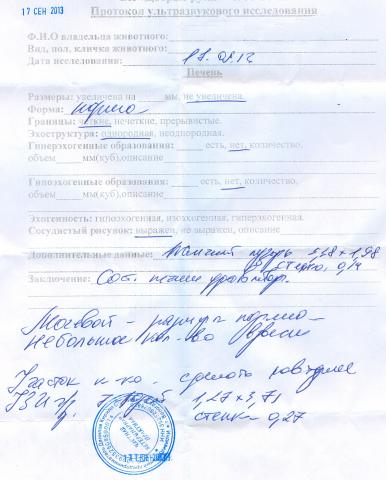 17 СЕН 2013
Протокол ультразвукового исследования
Ф.И.О владельца животного:
Вид, пол, кличка животного:
Дата исследования:
Печень
Размеры: увеличена на мм, не увеличена.
Форма: норма
Границы: четкие, нечеткие, прерывистые.
Эхоструктура: однородная, неоднородная.
Гиперэхогенные образования: есть, нет, количество,
объем мм(куб),описание
Гипоэхогенные образования: есть, нет, количество,
объем мм(куб),описание
Эхогенность: гипоэхогенная, изоэхогенная, гиперэхогенная.
Сосудистый рисунок: выражен, не выражен, описание
Дополнительные данные: Желчный пузырь 5,28 х 1,98
стенка 0,14
Заключение: Сост. печени удовлетвор.
Мочевой - норма
Небольшое кол-во взвеси
Участок сделать повторное
УЗИ 1,27 х 3,71
стенка 0,27